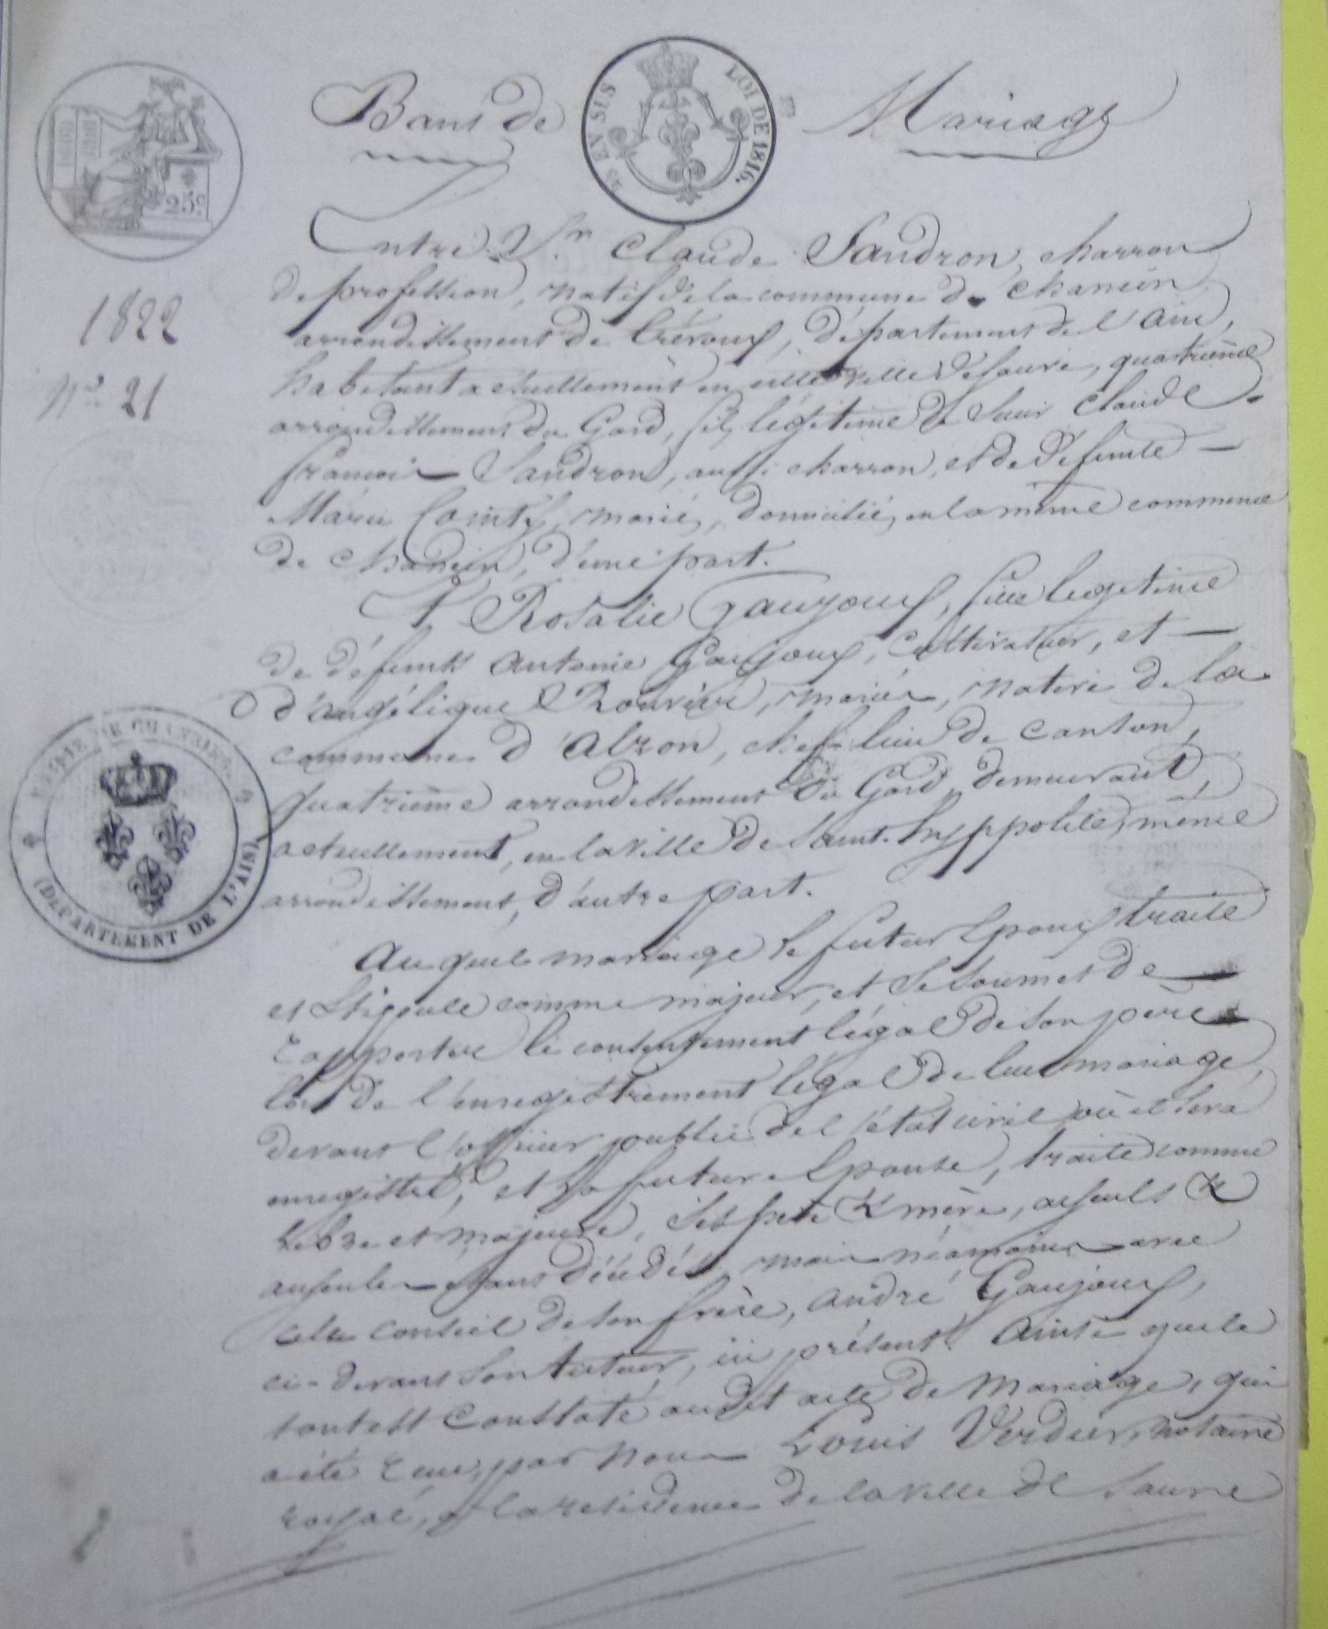 Bans de Mariage
EN SUS
LOI DE 1816.
25c
1822
N° 21
Entre Sr. Claude Sandron, charron
de profession, natif de la commune de Chanein
arrondissement de Trévoux, département de l'Ain,
habitant actuellement en cette ville de Sauve, quatrième
arrondissement du Gard, fils légitime de Sieur Claude
françois Sandron, aussi charron, et de défunte
Marie Comte, mariés, domiciliés en la même commune
de Chanein, d'une part.
Et Rosalie Gaujoux, fille légitime
de défunts Antoine Gaujoux, cultivateur, et
d'angélique Rouvière, mariés, native de la
commune d'Alzon, chef-lieu de canton,
quatrième arrondissement du Gard, demeurant
actuellement, en la ville de Saint-hyppolite, même
arrondissement, d'autre part.
MAIRIE DE
(DÉPARTEMENT DE L'AIN)
Au quel mariage le futur Epoux traite
et Stipule comme majeur, et se soumet de
rapporter le consentement légal de son père
lors de l'enregistrement légal de leur mariage,
devant l'officier public de l'état civil où il sera
enregistré, et la future Epouse, traite comme
libre et majeure, ses père & mère, ayeuls &
ayeules étant décédés, mais néanmoins avec
le conseil de son frère, andré Gaujoux,
ci-devant son tuteur, ici présent. Ainsi que le
tout est constaté audit acte de Mariage, qui
a été reçu par Nous Louis Verdier, notaire
royal, à la résidence de la ville de Sauve